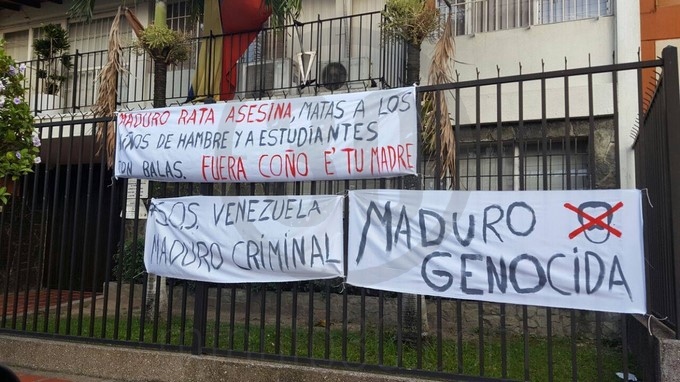 MADURO RATA ASESINA, MATAS A LOS
NIÑOS DE HAMBRE Y A ESTUDIANTES
CON BALAS. FUERA COÑO E' TU MADRE
S.O.S. VENEZUELA
MADURO CRIMINAL
MADURO
GENOCIDA